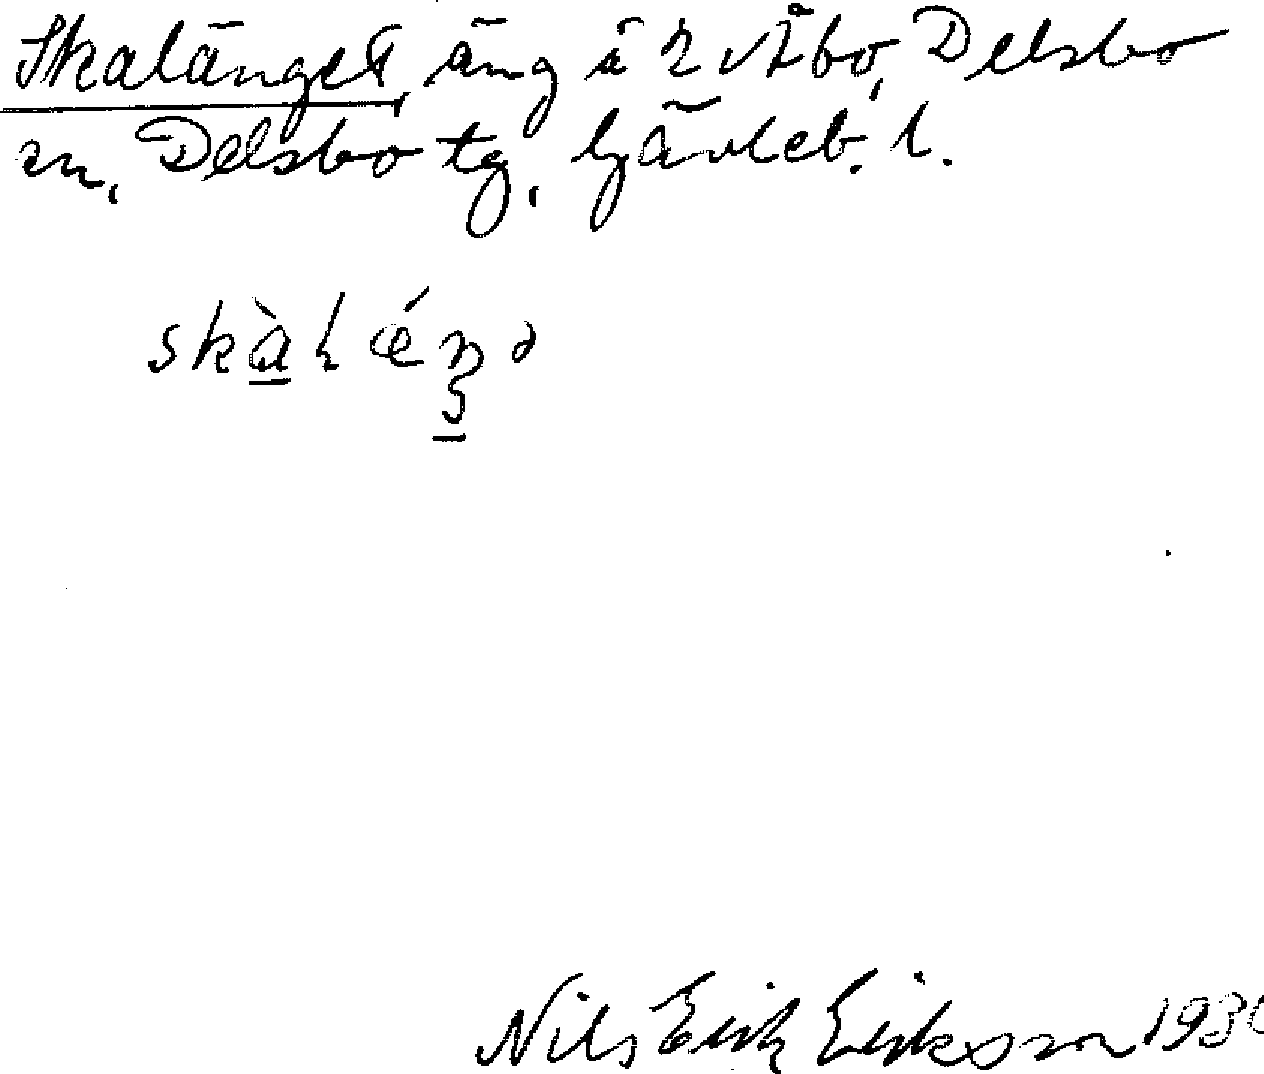 Skalänget, äng i Åbo, Delsbo
sn, Delsbo tg, Gävleb. l.
Nils Erik Eriksson